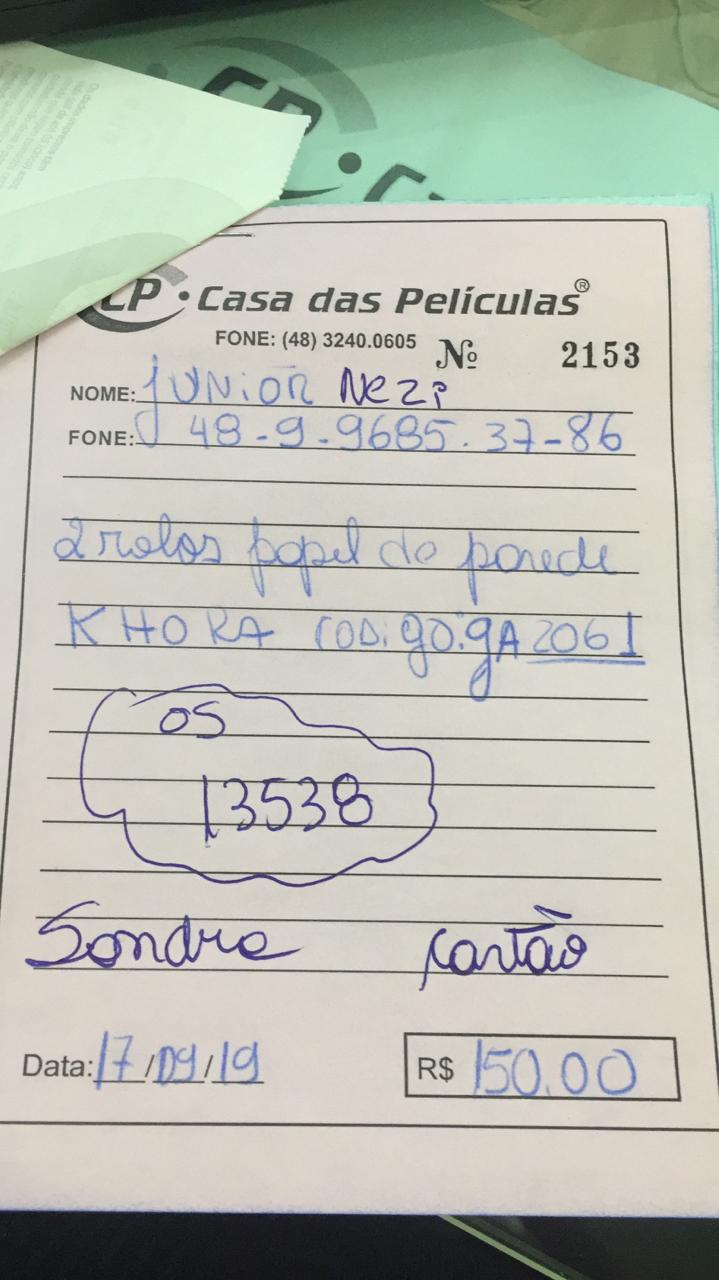 CP • Casa das Películas®
FONE: (48) 3240.0605 Nº 2153
NOME: JUNIOR Nezi
FONE: 48-9-9685.37-86
2 rolos papel de parede
KHORA CODigo: gA 2061
OS
13538
Sandra cartão
Data: 17/09/19 R$ 150.00